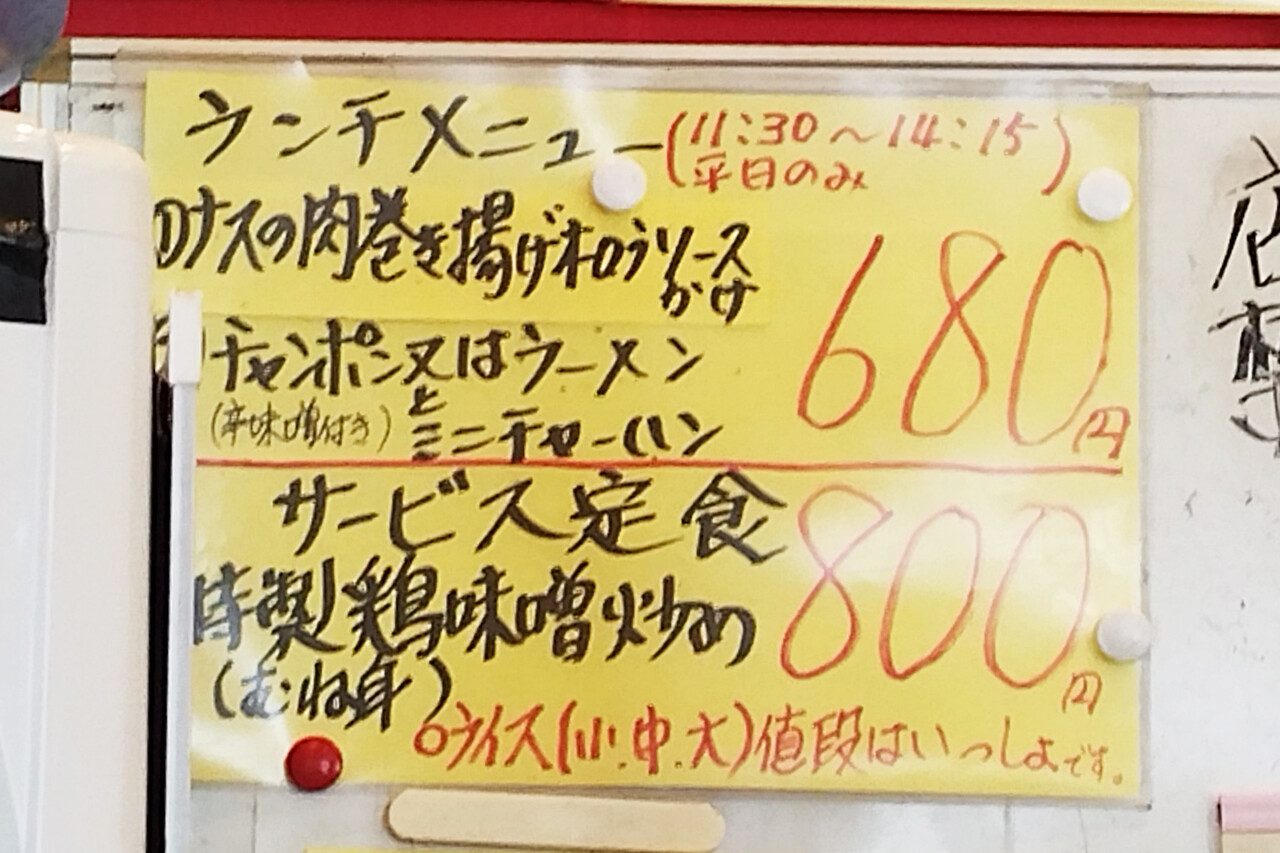 ランチメニュー(11:30～14:15)
平日のみ
①ナスの肉巻き揚げ和風ソース
かけ
チャンポン又はラーメン
と
(辛味噌付き) ミニチャーハン
680円
サービス定食
特製鶏味噌炒め
(むね身)
800円
○ライス(小.中.大)値段はいっしょです。